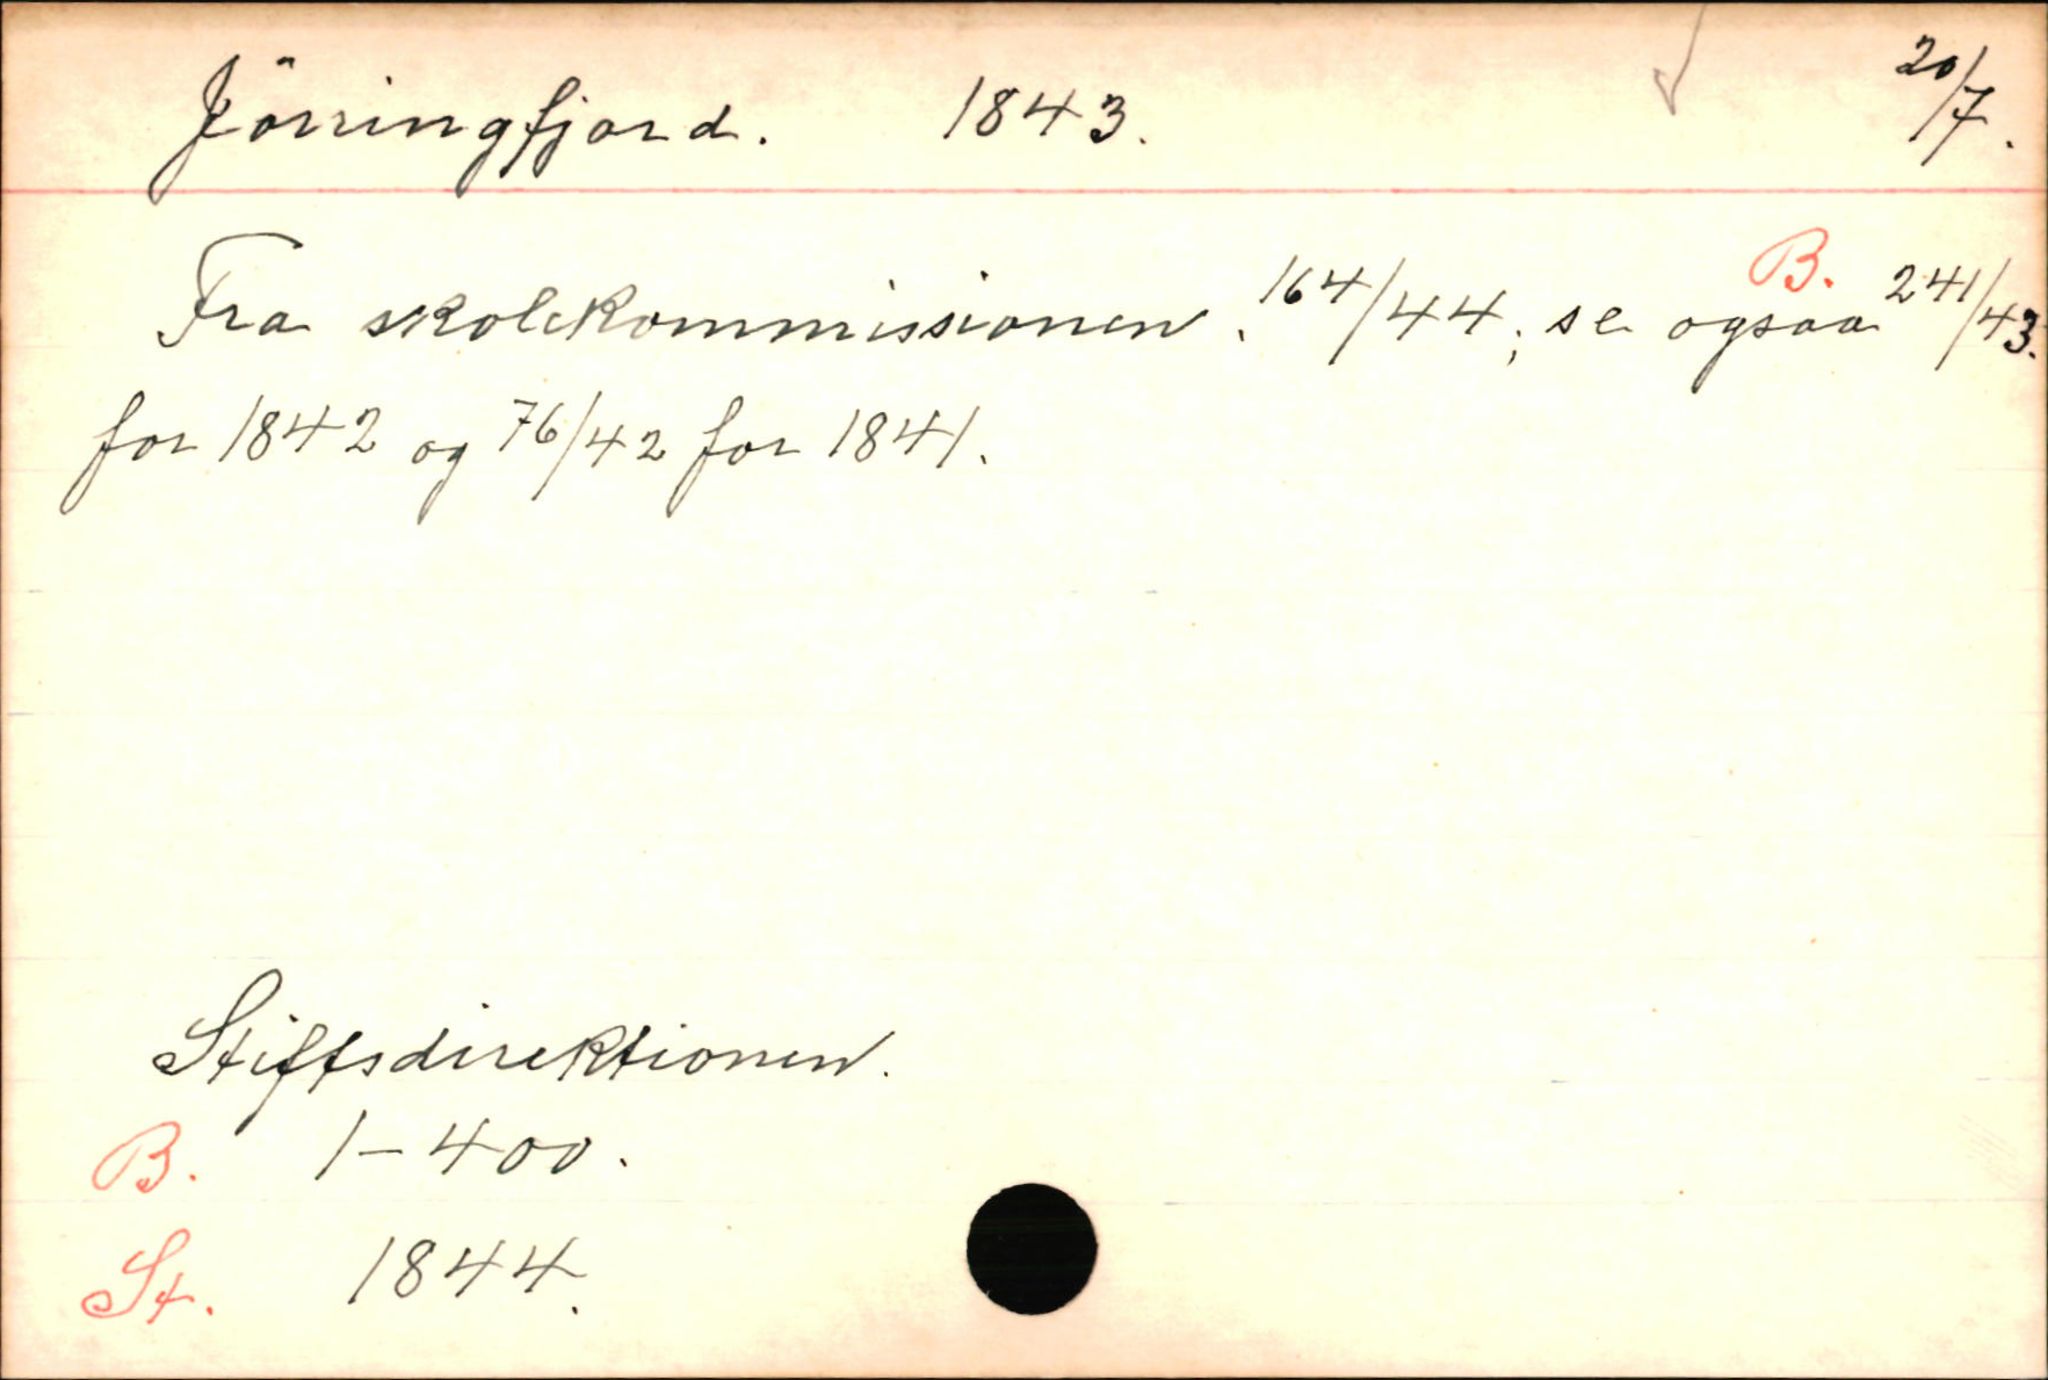 Jörringfjord. 1843. 20/7.
Fra skolekommissionen. 164/44; se ogsaa B. 241/43.
for 1842 og 76/42 for 1841.
Stiftsdirektionen.
B. 1-400.
St. 1844.